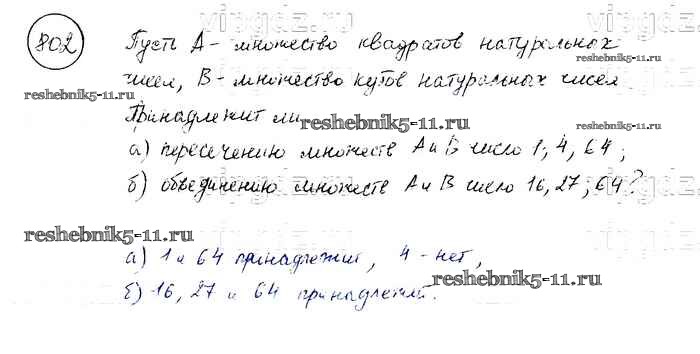 802
Пусть A - множество квадратов натуральных
чисел, B - множество кубов натуральных чисел
Принадлежит ли
а) пересечению множеств A и B число 1; 4, 64;
б) объединению множеств A и B число 16, 27; 64?
а) 1 и 64 принадлежит, 4 - нет,
б) 16, 27 и 64 принадлежит.
vipgdz.ru
reshebnik5-11.ru
reshebnik5-11.ru
reshebnik5-11.ru
reshebnik5-11.ru